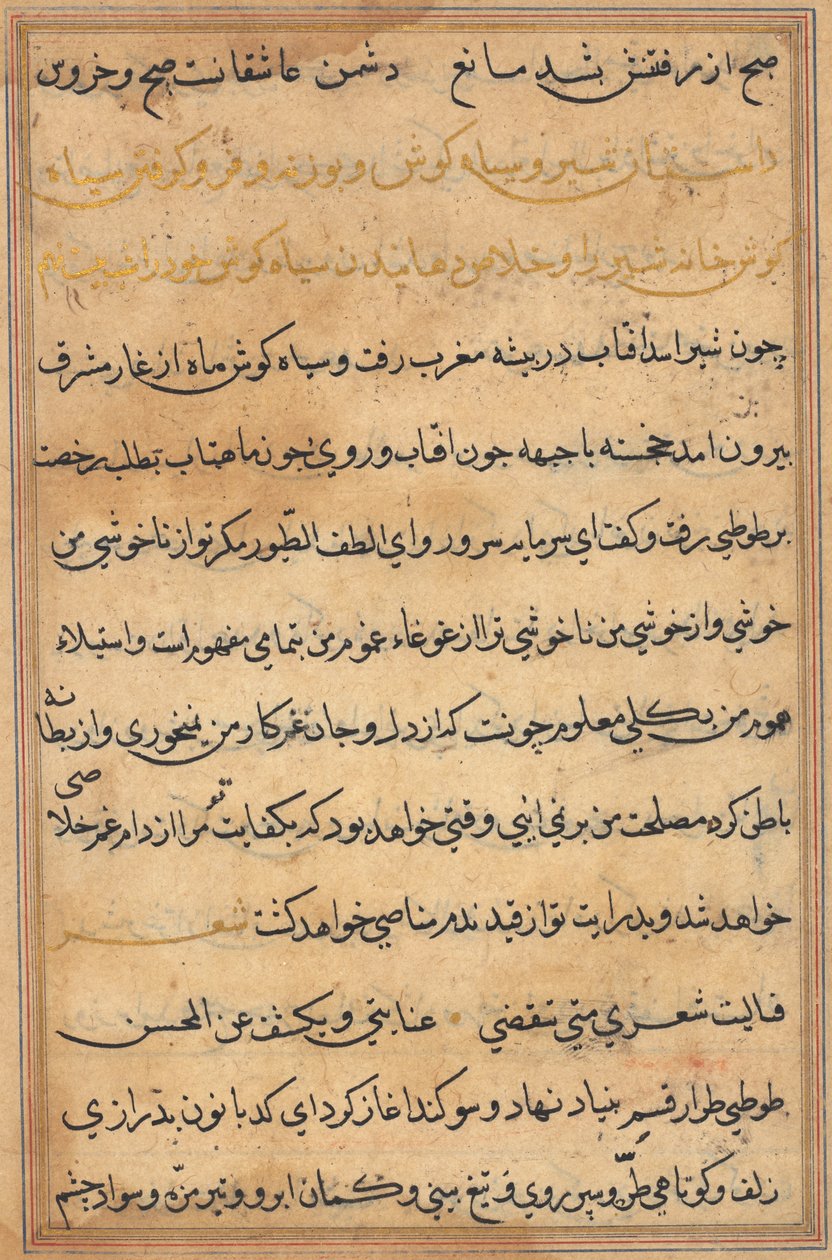 صبح از رفتنش بشد مانع دشمن عاشقانست صبح و خروس
داستان شیر و سیاه کوش و بوزنه و فرو کرفتن سیاه
کوش خانه شیر را و خلاص دهانیدن سیاه کوش خود را شب بیست نهم
چون شیر اسد افتاب در بیشه مغرب رفت و سیاه کوش ماه از غار مشرق
بیرون امد خجسته با جبهه جون افتاب و روی جون ماهتاب بطلب رخصت
بر طوطی رفت و کفت ای سرمایه سرور و ای الطف الطّیور مکر تو از ناخوشی من
خوشی و از خوشی من ناخوشی ترا از غوغاء غموم من بتمامی مفهوم است و استیلاء
هموم من بکلی معلوم چونست که از دل و جان غم کار من نمیخوری و از بطانه
باطن کرد مصلحت من بر نمی ایی وقتی خواهد بود که بکفایت تو مرا از دام غم خلاصی
خواهد شد و بدرایت تو از قید ندم مناصی خواهد کشت شعر
فالیت شعری متی تنقضی عنایتی و یکشف عن المحسن
طوطی طرار قسم بنیاد نهاد و سوکند اغاز کرد ای کدبانون بدرازی
زلف و کوتاهی طرّ و سپر روی و تیغ بینی و کمان ابرو و تیر مزّه و سواد جشم